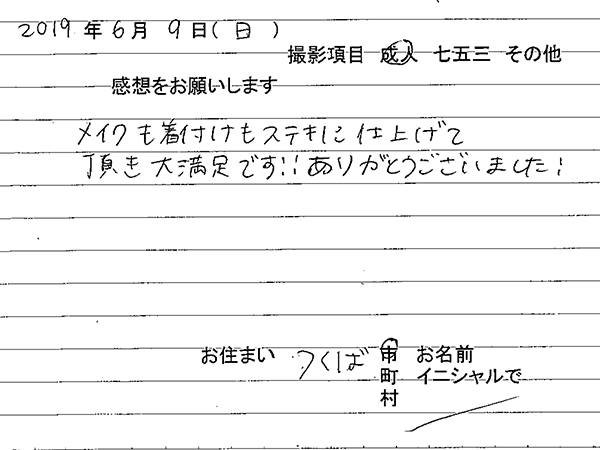 2019年6月9日(日)
撮影項目 成人 七五三 その他
感想をお願いします
メイクも着付けもステキに仕上げて
頂き大満足です!!ありがとうございました!
お住まい つくば 市 お名前
町 イニシャルで
村